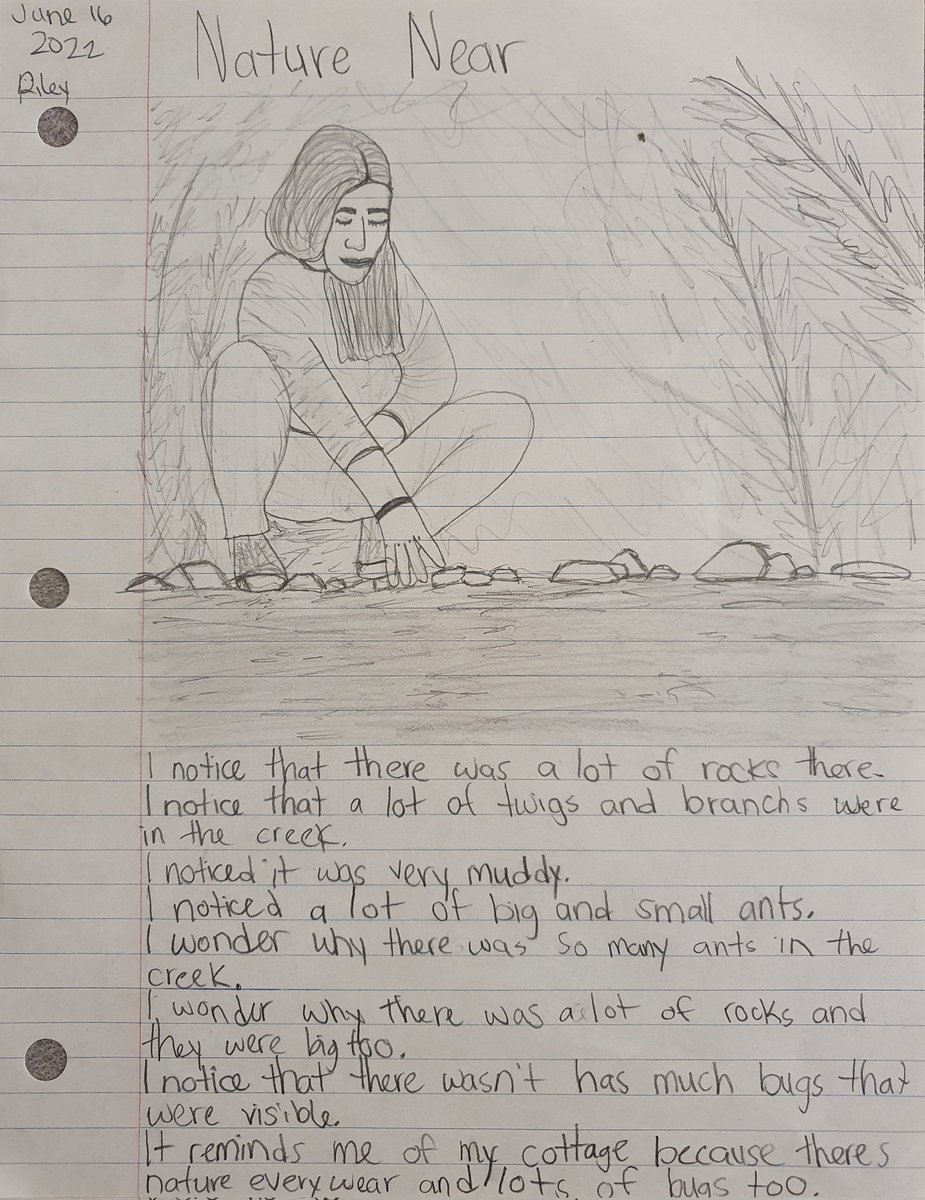 June 16
2022
Riley
Nature Near
I notice that there was a lot of rocks there.
I notice that a lot of twigs and branchs were
in the creek.
I noticed it was very muddy.
I noticed a lot of big and small ants.
I wonder why there was so many ants in the
creek.
I wonder why there was a lot of rocks and
they were big too.
I notice that there wasn't has much bugs that
were visible.
It reminds me of my cottage because theres
nature every wear and lots of bugs too.